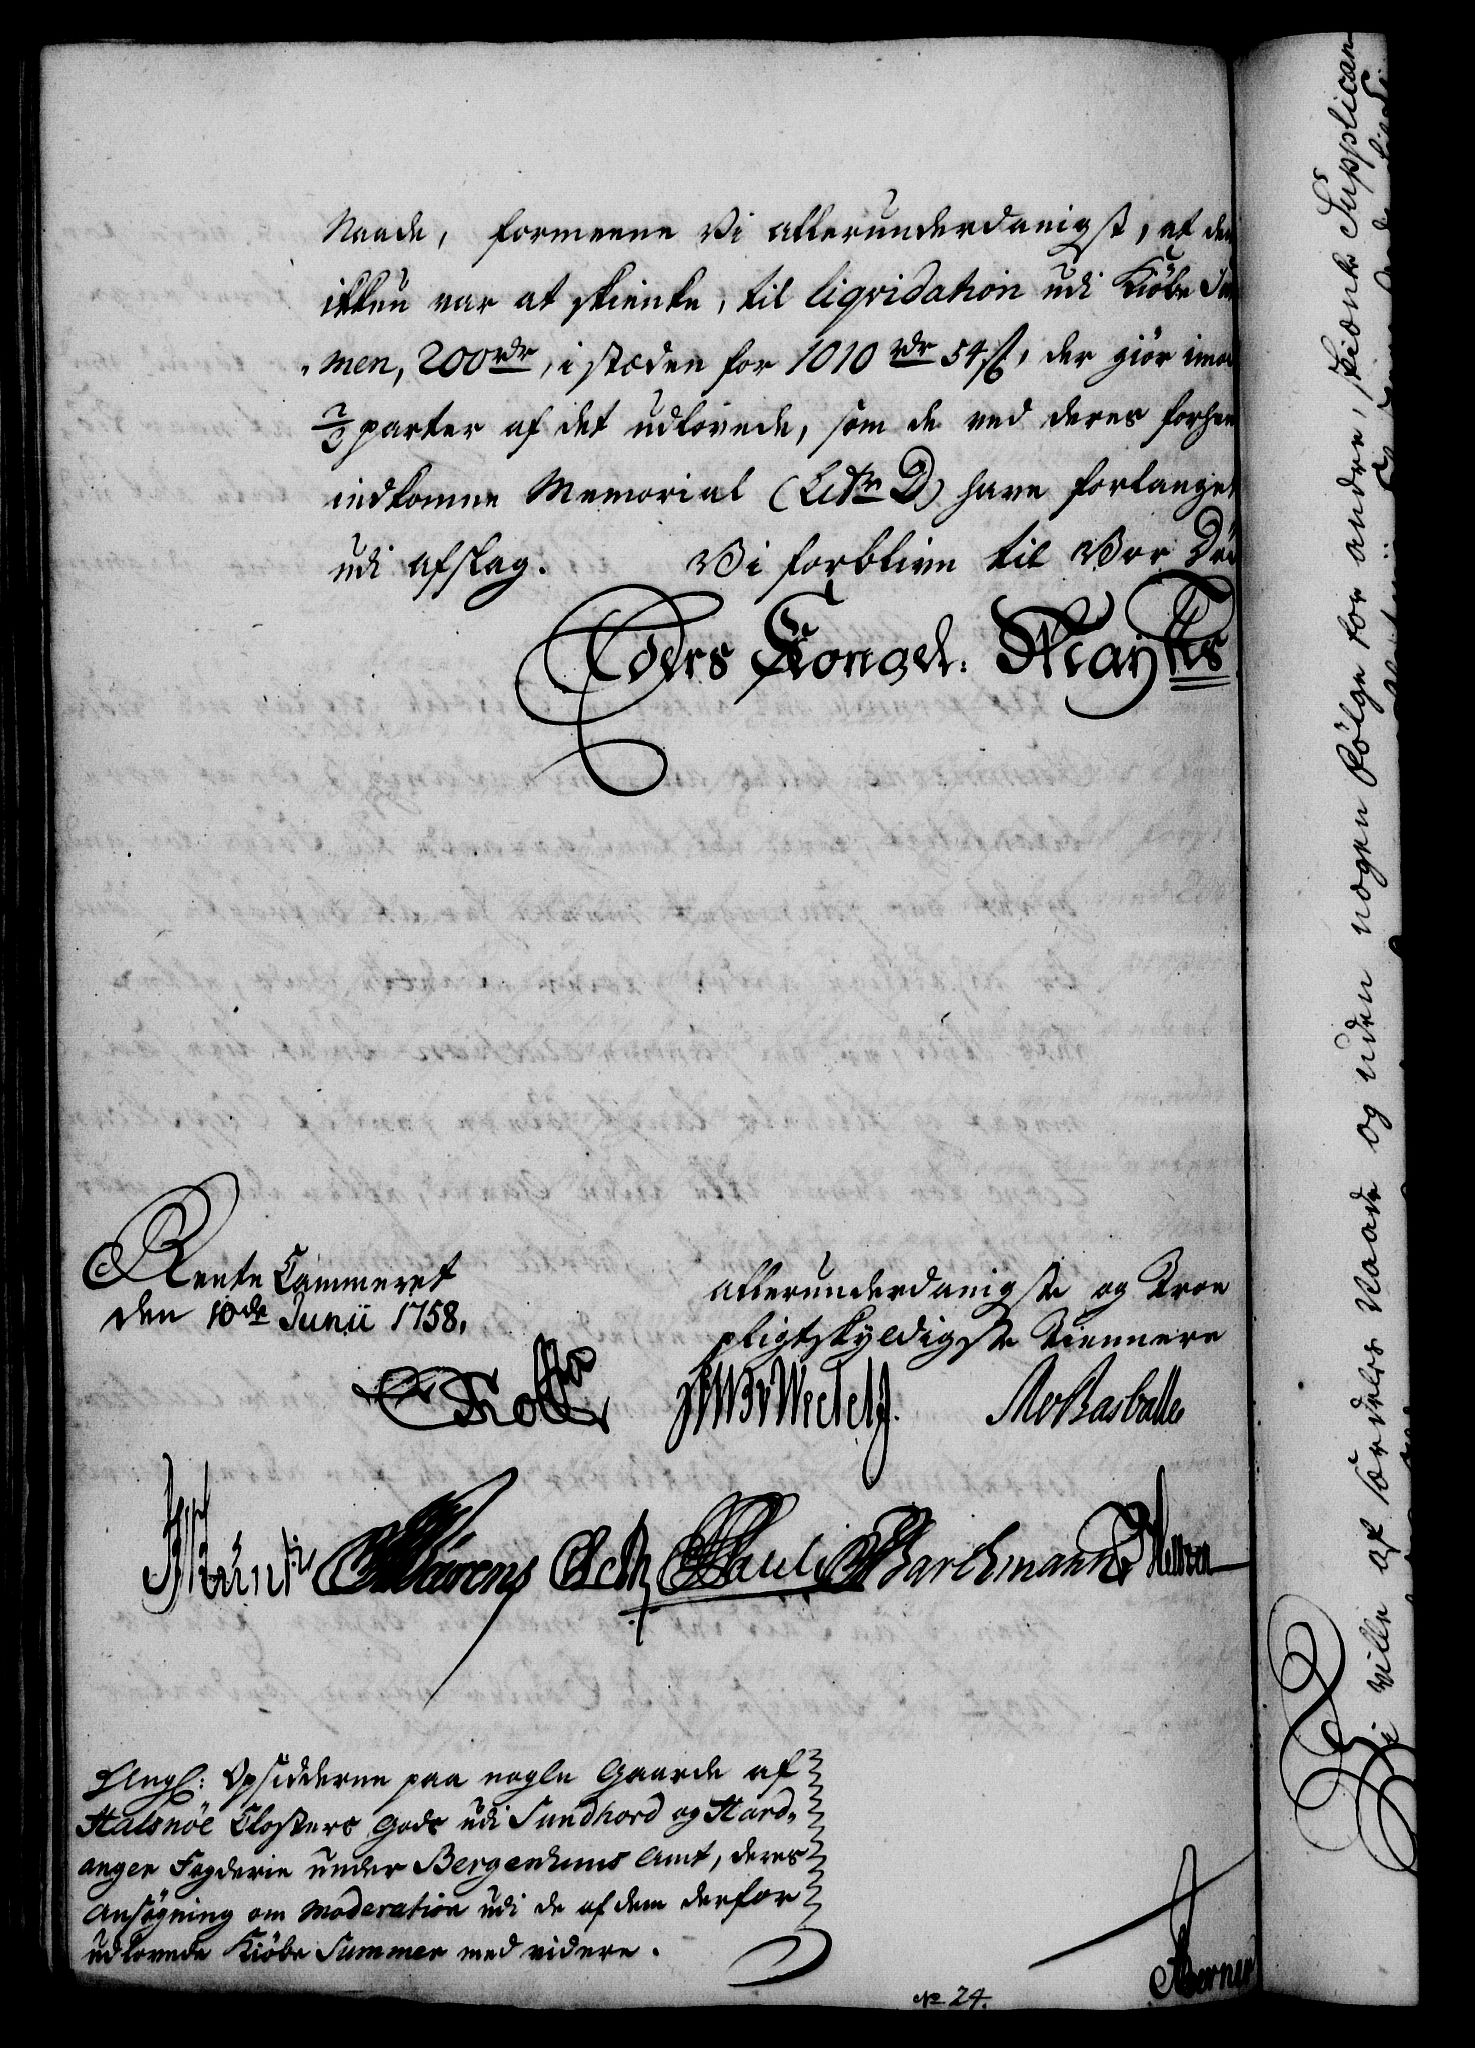 Naade, formeene Vi allerunderdanigst, at dem
ikkun var at skienke, til liqvidation udi Kiøbe Sum
men, 200 rdr, i stæden for 1010 rdr 54 ß, der giør imod
2/3 parter af det udlovede, som de ved deres forhen
indkomne Memorial (Litr D) have forlanget
udi afslag. Vi forblive til Vor Død
Eders Kongel: Mayts
Rente Cammeret
den 10de Junii 1758.
allerunderdanigste og Troe
pligtskyldigste Tiennere
Holst
Barchmann
Angl: Opsidderne paa nogle Gaarde af
Halsnöe Closters Gods udi Sundhord og Hard-
anger Fogderie under Bergenhuus Amt, deres
Ansøgning om Moderation udi de af dem derfor
udlovede Kiöbe Summer med videre.
No 24.
Berner
Vi ville af særdeles Naade og uden nogen Følge for andre, skiænke Supplican